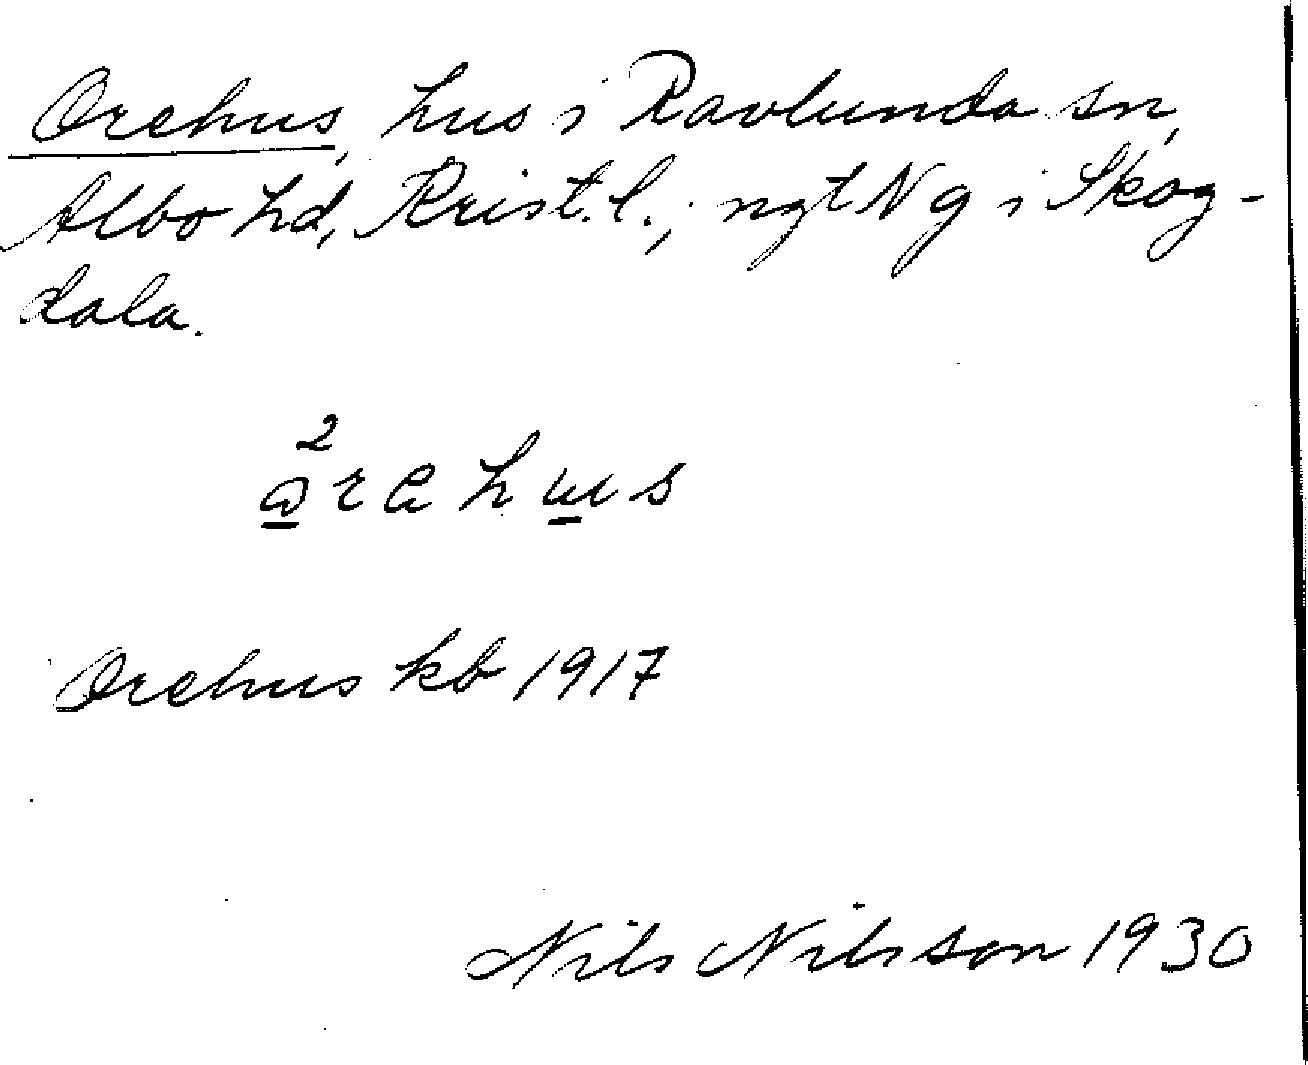 Orehus, hus i Ravlunda sn,
Albo hd, Krist. l.; ngt N g i Skog-
dala.
2
Orehus kb 1917
Nils Nilsson 1930